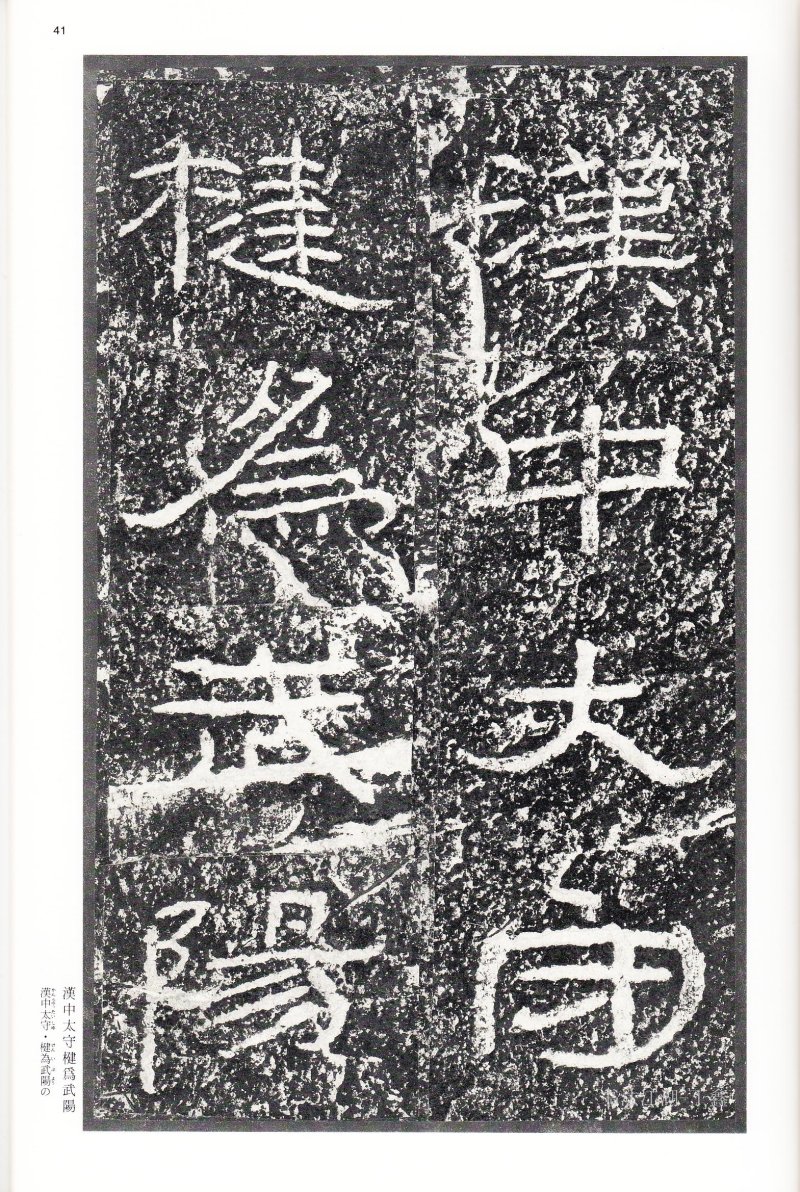 41
漢中大守
楗為武陽
漢中太守楗爲武陽
漢中太守・楗為武陽の